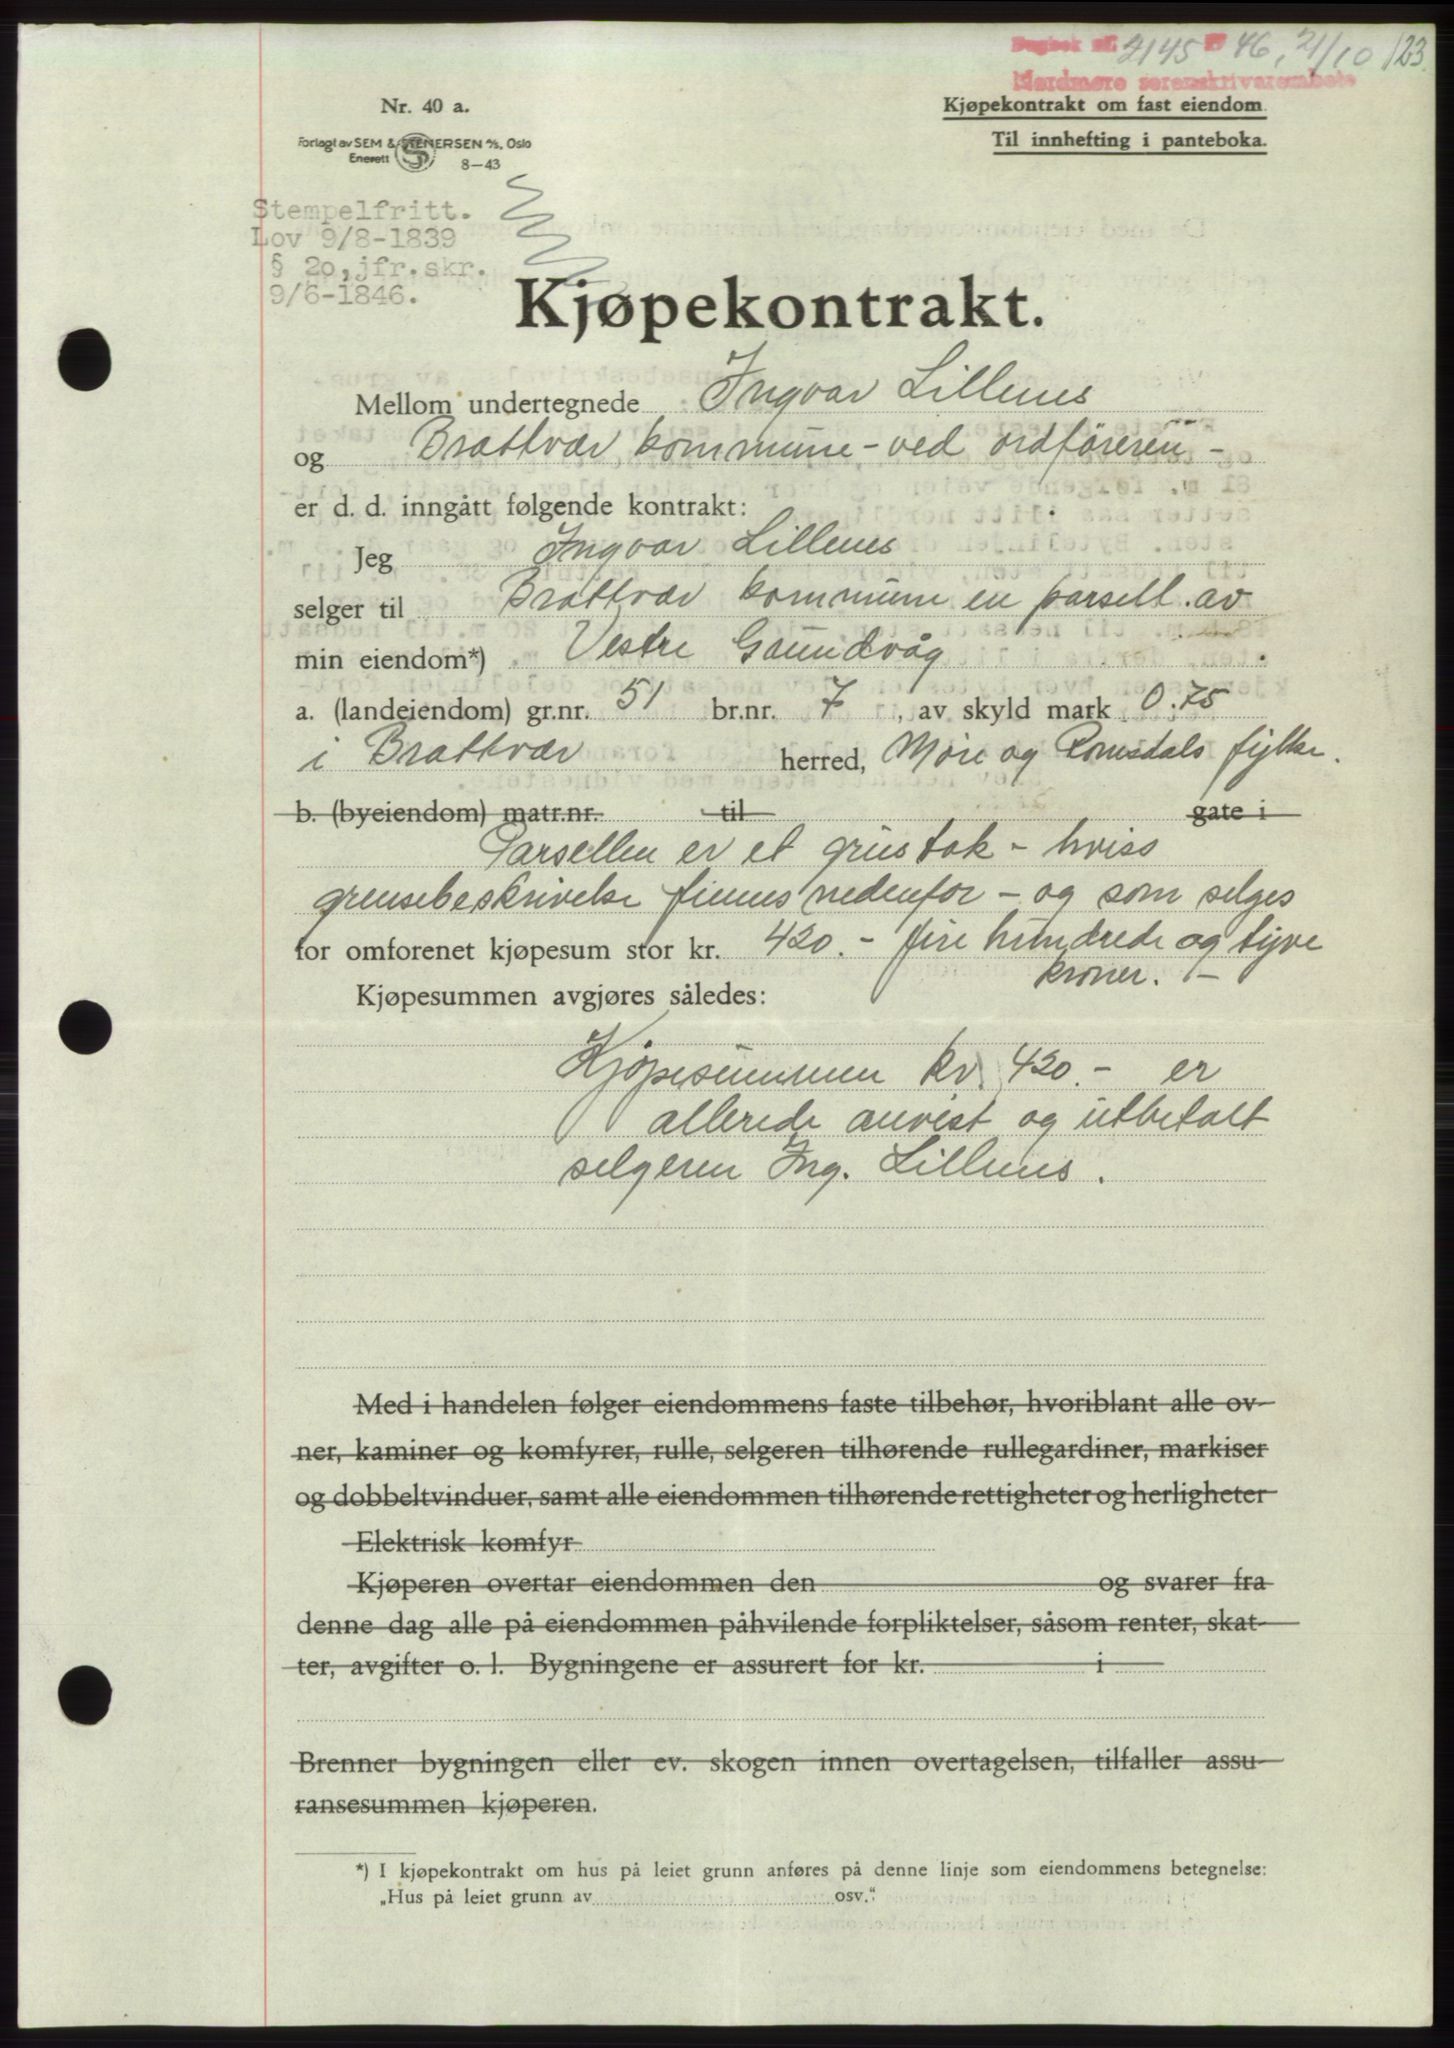 Dagbok nr. 2145 19 46, 21/10 123.
Nordmøre sorenskrivarembete
Nr. 40 a.
Kjøpekontrakt om fast eiendom
Til innhefting i panteboka.
Forlagt av SEM & STENERSEN A/S, Oslo
Enerett 8-43
Stempelfritt.
Lov 9/8-1839
§ 20, jfr. skr.
9/6-1846.
Kjøpekontrakt.
Mellom undertegnede Ingvar Lillenes
og Brattvær kommune - ved ordføreren -
er d. d. inngått følgende kontrakt:
Jeg Ingvar Lillenes
selger til Brattvær kommune en parsell av
min eiendom*) Vestre Gaundvåg
a. (landeiendom) gr.nr. 51 br.nr. 7, av skyld mark 0.75
i Brattvær herred, Møre og Romsdals fylke.
b. (byeiendom) matr.nr. til gate i
Parsellen er et grustak - hviss
grensebeskrivelse finnes nedenfor - og som selges
for omforenet kjøpesum stor kr. 420.- fire hundrede og tyve
kroner. -
Kjøpesummen avgjøres således:
Kjøpesummen kr. 420.- er
allerede anvist og utbetalt
selgeren Ing. Lillenes.
Med i handelen følger eiendommens faste tilbehør, hvoriblant alle ov-
ner, kaminer og komfyrer, rulle, selgeren tilhørende rullegardiner, markiser
og dobbeltvinduer, samt alle eiendommen tilhørende rettigheter og herligheter
Elektrisk komfyr
Kjøperen overtar eiendommen den og svarer fra
denne dag alle på eiendommen påhvilende forpliktelser, såsom renter, skat-
ter, avgifter o. l. Bygningene er assurert for kr. i
Brenner bygningen eller ev. skogen innen overtagelsen, tilfaller assu-
ransesummen kjøperen.
*) I kjøpekontrakt om hus på leiet grunn anføres på denne linje som eiendommens betegnelse:
„Hus på leiet grunn av osv."